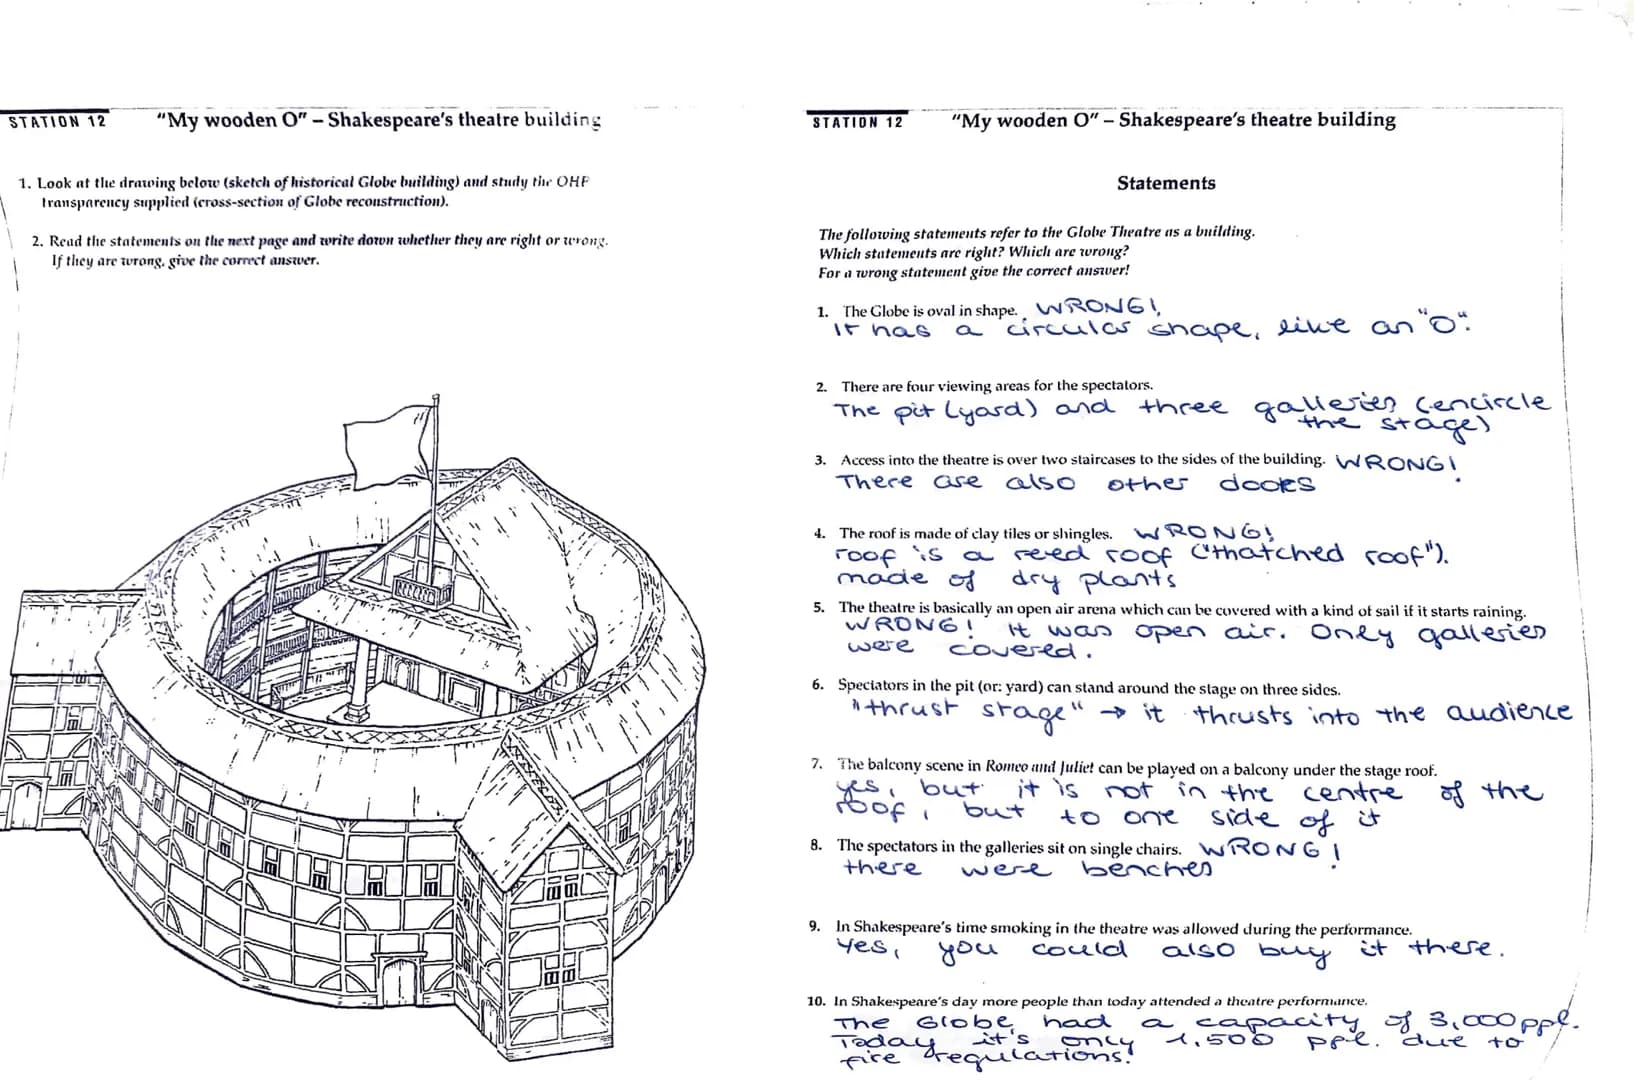 STATION 12 "My wooden O" – Shakespeare's theatre building
1. Look at the drawing below (sketch of historical Globe building) and study the OHP
transparency supplied (cross-section of Globe reconstruction).
2. Read the statements on the next page and write down whether they are right or wrong.
If they are wrong, give the correct answer.
STATION 12 "My wooden O" – Shakespeare's theatre building
Statements
The following statements refer to the Globe Theatre as a building.
Which statements are right? Which are wrong?
For a wrong statement give the correct answer!
1. The Globe is oval in shape. WRONG!
It has a circular shape, like an "O".
2. There are four viewing areas for the spectators.
The pit (yard) and three galleries (encircle
the stage)
3. Access into the theatre is over two staircases to the sides of the building. WRONG!
There are also other doors
4. The roof is made of clay tiles or shingles. WRONG!
roof is a reed roof ("thatched roof").
made of dry plants
5. The theatre is basically an open air arena which can be covered with a kind of sail if it starts raining.
WRONG! It was open air. Only galleries
were covered.
6. Spectators in the pit (or: yard) can stand around the stage on three sides.
"thrust stage" → it thrusts into the audience
7. The balcony scene in Romeo and Juliet can be played on a balcony under the stage roof.
yes, but it is not in the centre of the
roof, but to one side of it
8. The spectators in the galleries sit on single chairs. WRONG!
there were benches
9. In Shakespeare's time smoking in the theatre was allowed during the performance.
Yes, you could also buy it there.
10. In Shakespeare's day more people than today attended a theatre performance.
The Globe had a capacity of 3,000 ppl.
Today it's only 1,500 ppl. due to
fire regulations!